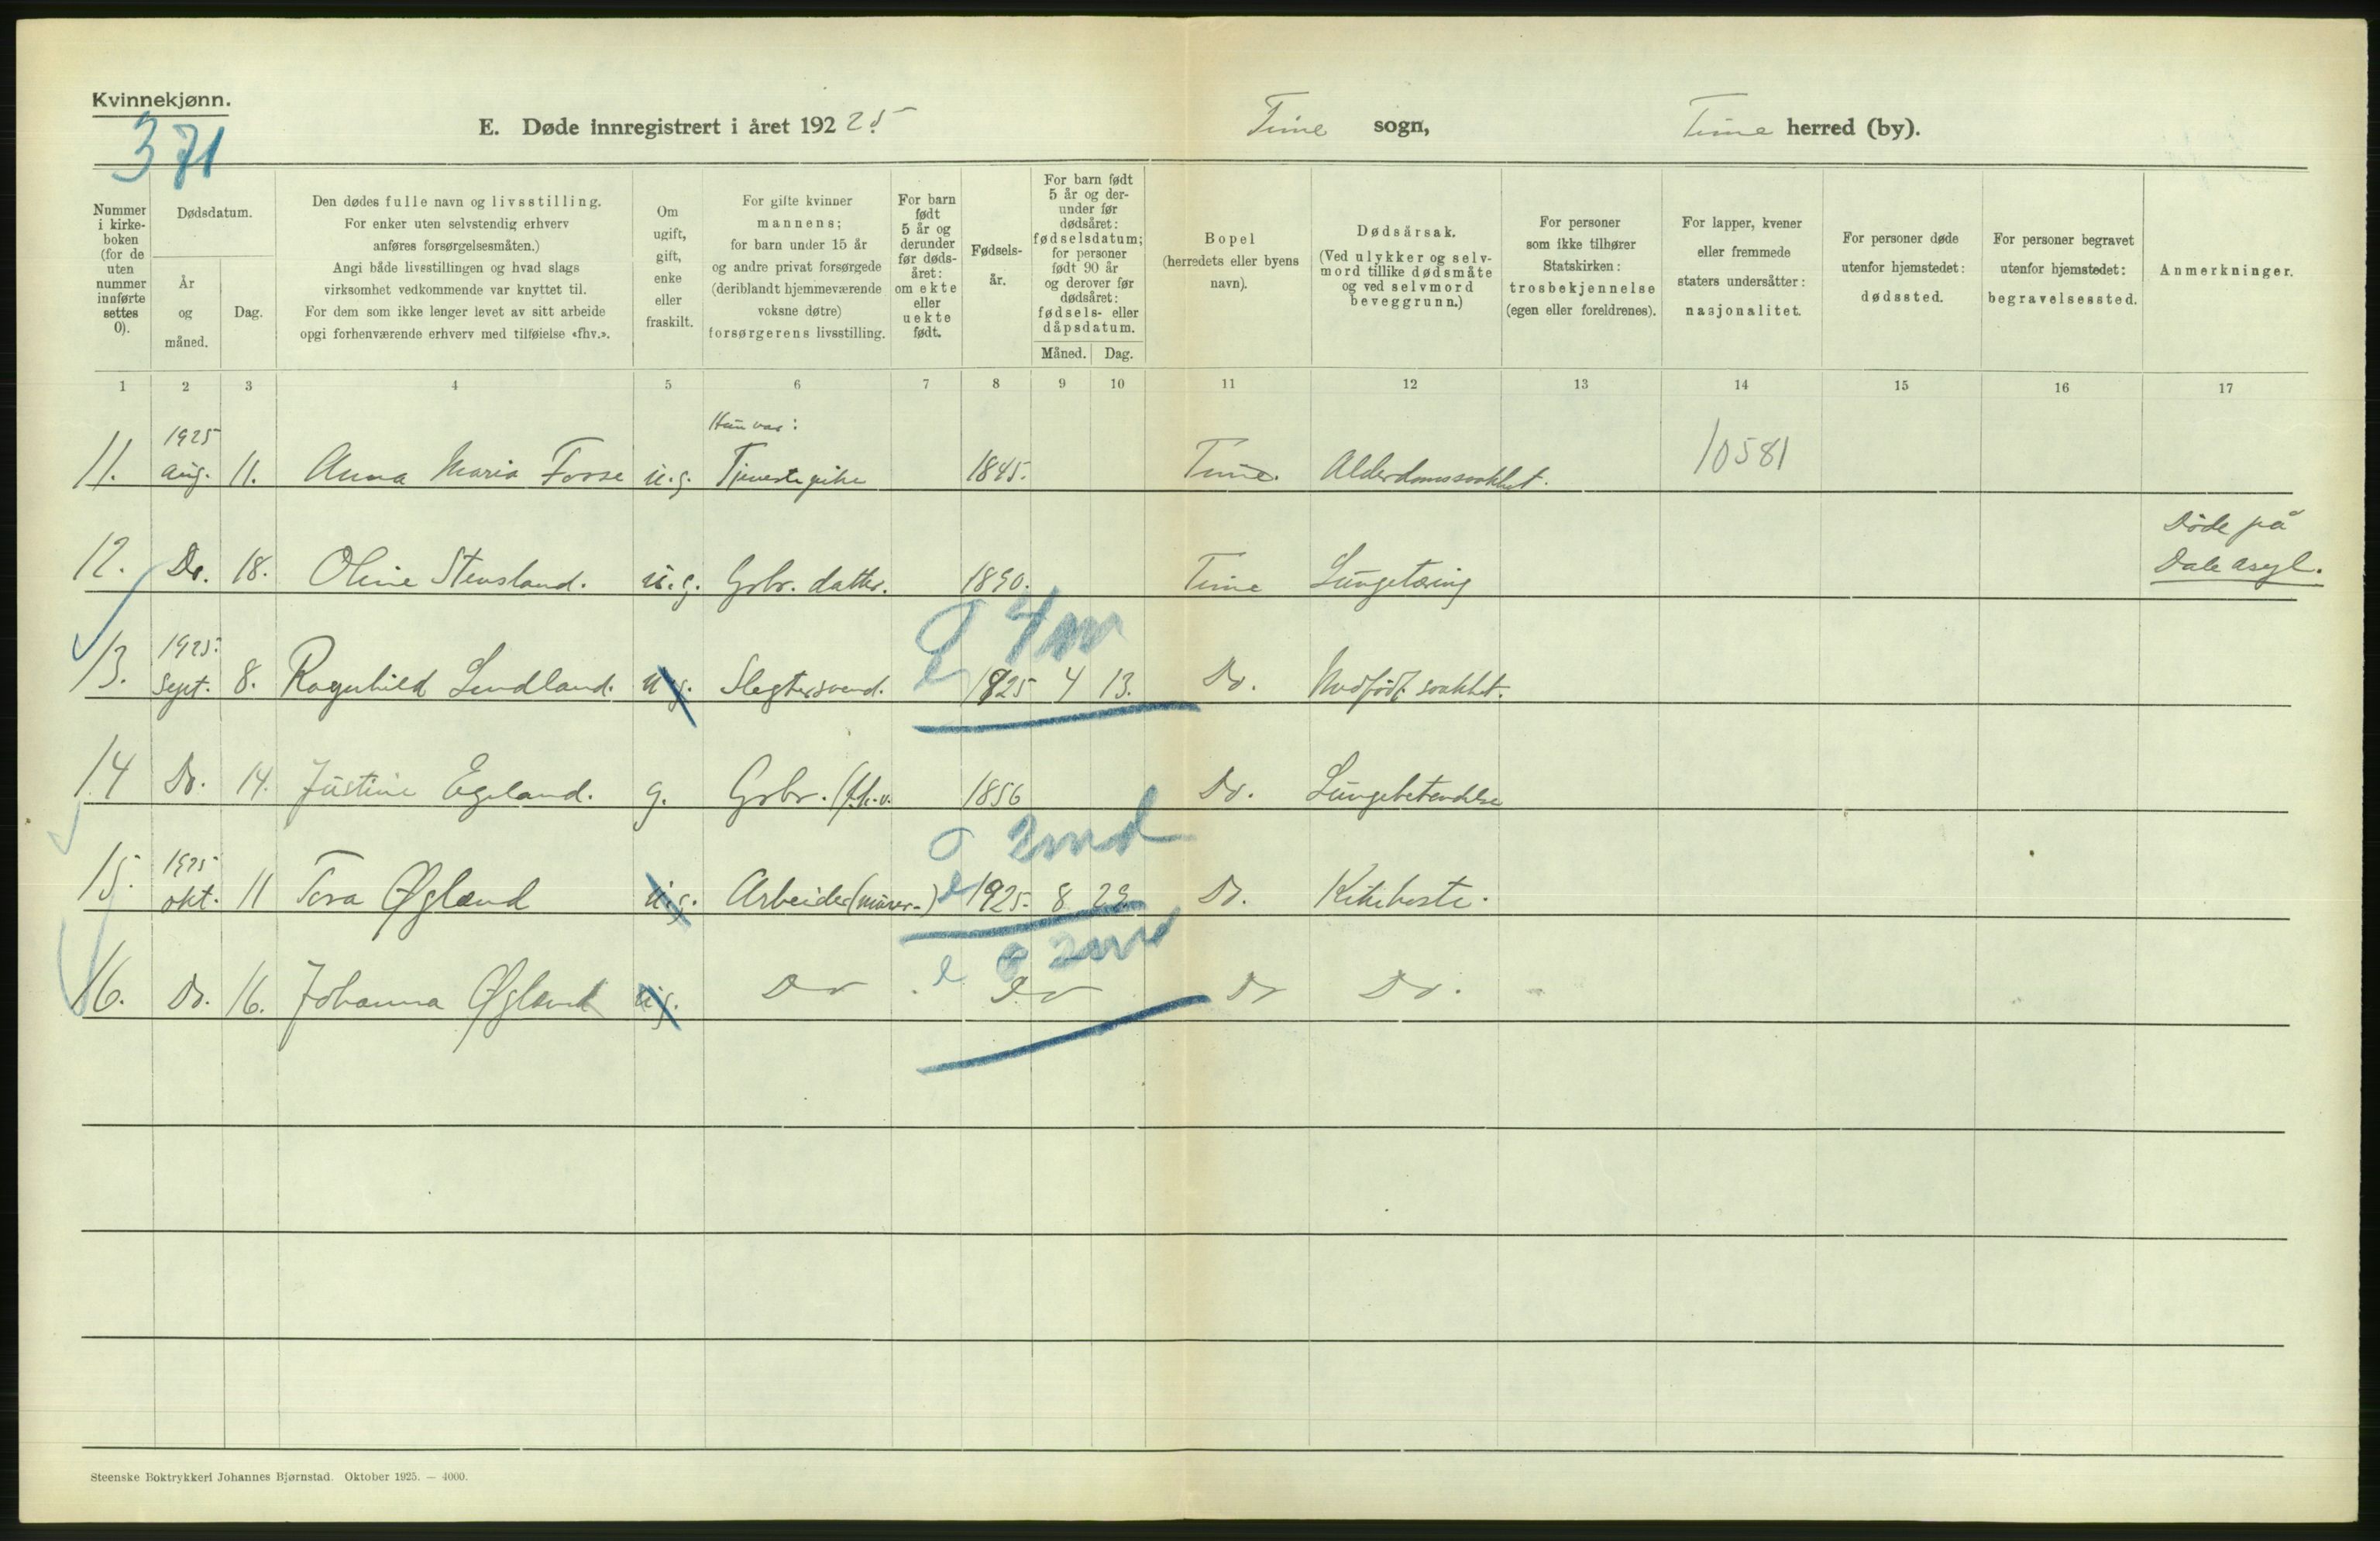 Kvinnekjønn.
371
E. Døde innregistrert i året 192 25
Time sogn,
Time herred (by).
Nummer i kirke-boken (for de uten nummer innførte settes 0).
Dødsdatum.
År og måned.
Dag.
Den dødes fulle navn og livsstilling.
For enker uten selvstendig erhverv
anføres forsørgelsesmåten.)
Angi både livsstillingen og hvad slags
virksomhet vedkommende var knyttet til.
For dem som ikke lenger levet av sitt arbeide
opgi forhenværende erhverv med tilføielse «fhv.».
Om ugift, gift, enke eller fraskilt.
For gifte kvinner
mannens;
for barn under 15 år
og andre privat forsørgede
(deriblandt hjemmeværende
voksne døtre)
forsørgerens livsstilling.
For barn født 5 år og derunder før døds-året: om ekte eller uekte født.
Fødsels-år.
For barn født 5 år og der-under før dødsåret: fødselsdatum; for personer født 90 år og derover før dødsåret: fødsels- eller dåpsdatum.
Måned.
Dag.
Bopel
(herredets eller byens
navn).
Dødsårsak.
(Ved ulykker og selv-
mord tillike dødsmåte
og ved selvmord
beveggrunn.)
For personer
som ikke tilhører
Statskirken:
trosbekjennelse
(egen eller foreldrenes).
For lapper, kvener
eller fremmede
staters undersåtter:
nasjonalitet.
For personer døde
utenfor hjemstedet:
dødssted.
For personer begravet
utenfor hjemstedet:
begravelsessted.
Anmerkninger.
1 2 3 4 5 6 7 8 9 10 11 12 13 14 15 16 17
1925 Hun var:
11. aug. 11. Anna Maria Fosse u.g. Tjenestepike 1845. Time. Alderdomssvakhet. 10581
Døde på
12. Do. 18. Oline Stensland. u.g. Grbr. datter. 1890. Time Lungetæring Dale asyl.
0 4 m
1925.
13. Sept. 8. Ragnhild Lendland. u.g. Slegtersvend. e 1925 4 13. Do. Medfødt svakhet.
14 Do. 14. Justine Egeland. g. Grbr. (fh.v. 1856 Do. Lungebetendelse
0 2 md
1925
15. okt. 11 Tora Øgland u.g. Arbeider (murer-) e 1925. 8 22. Do. Kikhoste.
0 2 md
16. Do. 16. Johanna Øgland u.g. Do e Do Do Do.
Steenske Boktrykkeri Johannes Bjørnstad. Oktober 1925. — 4000.